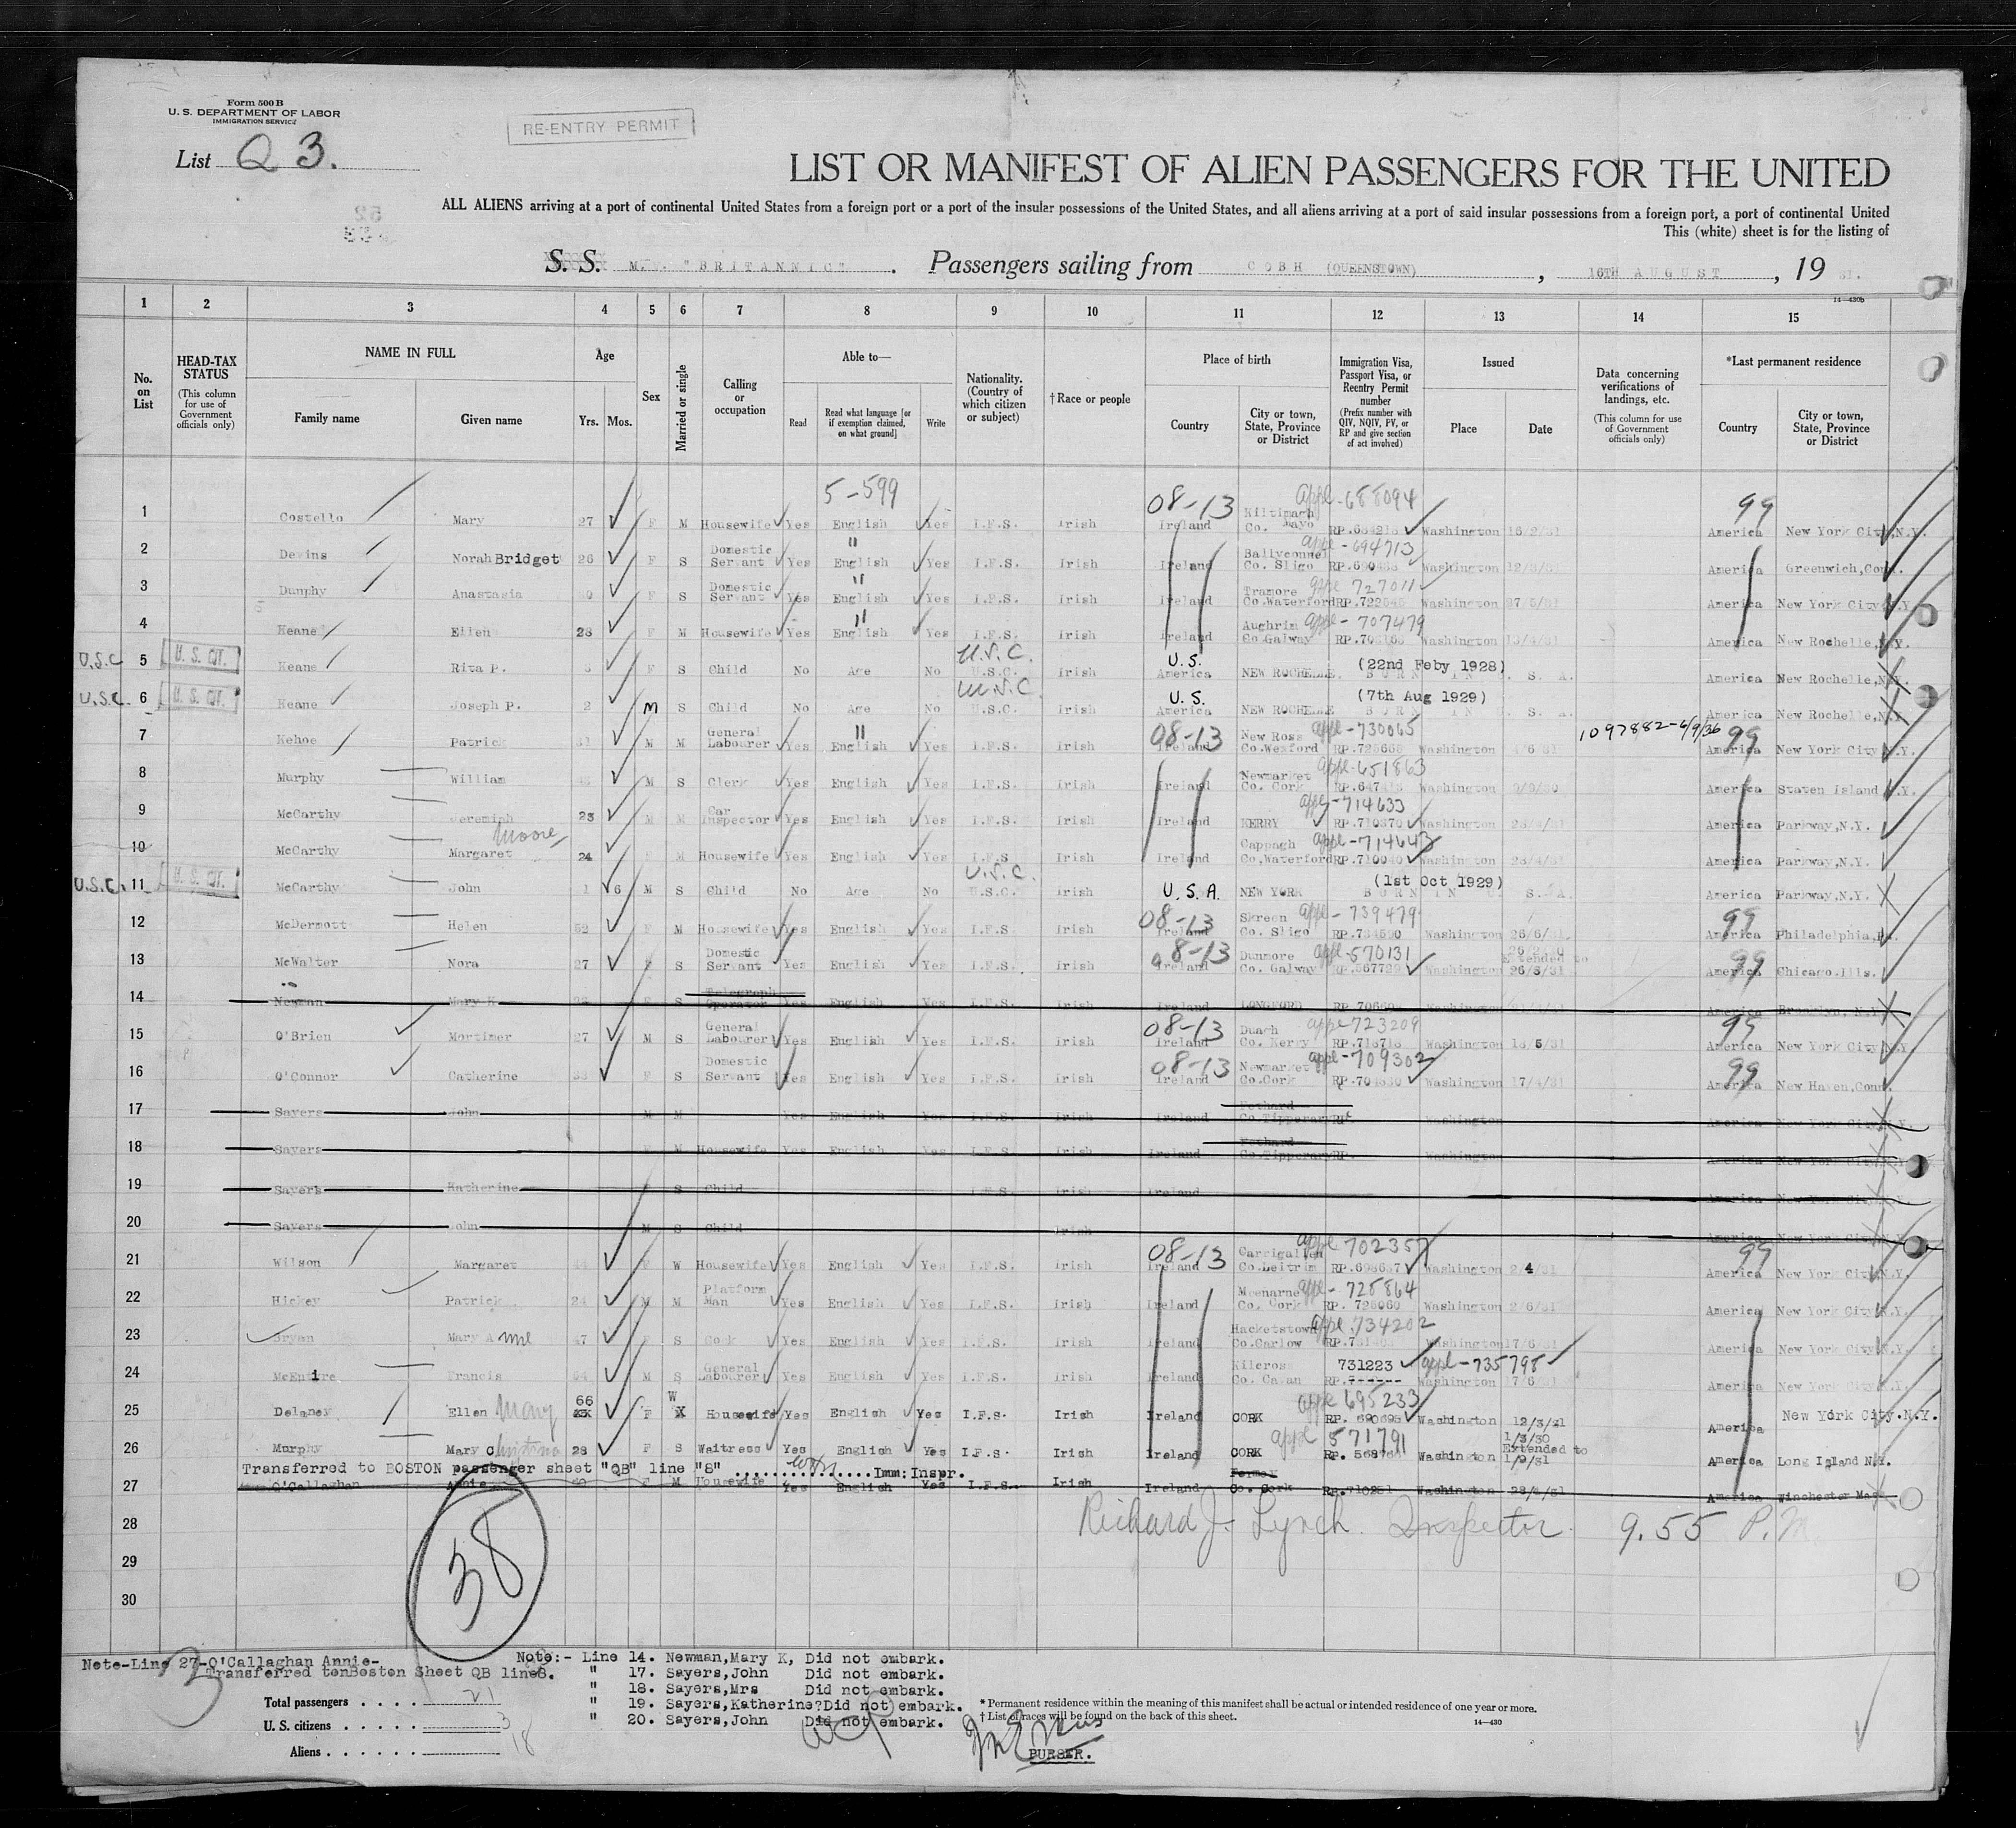 Form 500 B
U. S. DEPARTMENT OF LABOR
IMMIGRATION SERVICE
RE-ENTRY PERMIT
List Q 3.
LIST OR MANIFEST OF ALIEN PASSENGERS FOR THE UNITED
ALL ALIENS arriving at a port of continental United States from a foreign port or a port of the insular possessions of the United States, and all aliens arriving at a port of said insular possessions from a foreign port, a port of continental United
This (white) sheet is for the listing of
S. S. "BRITANNIC" . Passengers sailing from COBH (QUEENSTOWN) , 16TH AUGUST , 19 31.
14—430b
1 2 3 4 5 6 7 8 9 10 11 12 13 14 15
No. on List
HEAD-TAX STATUS (This column for use of Government officials only)
NAME IN FULL Family name Given name
Age Yrs. Mos.
Sex
Married or single
Calling or occupation
Able to— Read Read what language [or if exemption claimed, on what ground] Write
Nationality. (Country of which citizen or subject)
†Race or people
Place of birth Country City or town, State, Province or District
Immigration Visa, Passport Visa, or Reentry Permit number (Prefix number with QIV, NQIV, PV, or RP and give section of act involved)
Issued Place Date
Data concerning verifications of landings, etc. (This column for use of Government officials only)
*Last permanent residence Country City or town, State, Province or District
5-599 08-13 appl-688094 99
1 Costello Mary 27 F M Housewife Yes English Yes I.F.S. Irish Ireland Kiltimagh Co. Mayo Washington 16/2/31 America New York City, N.Y.
2 Devins Norah Bridget 26 F S Domestic Servant Yes English Yes I.F.S. Irish Ireland Co. Sligo appl-694713 Washington America Greenwich, Conn.
3 Dunphy Anastasia F S Domestic Servant Yes English Yes I.F.S. Irish Ireland Tramore Co.Waterford appl 727011 Washington 27/5/31 America New York City N.Y.
4 Keane Ellen 28 F M Housewife Yes English Yes I.F.S. Irish Ireland Aughrim Co.Galway appl-707479 Washington 13/4/31 America New Rochelle, N.Y.
U.S.C 5 U. S. CIT. Keane Rita P. 3 F S Child No Age No U.S.C. U.S.C. Irish U.S. America NEW ROCHELLE. (22nd Feby 1928) BORN IN U. S. A. America New Rochelle, N.Y.
U.S.C. 6 U. S. CIT. Keane Joseph P. 2 M S Child No Age No U.S.C. U.S.C. Irish U.S. America NEW ROCHELLE (7th Aug 1929) BORN IN U. S. A. America New Rochelle, N.Y.
7 Kehoe Patrick 31 M M General Labourer Yes English Yes I.F.S. Irish 08-13 Ireland New Ross Co.Wexford appl-730065 Washington 4/6/31 1097882-6/9/36 99 America New York City N.Y.
8 Murphy William M S Clerk Yes English Yes I.F.S. Irish Ireland Newmarket Co. Cork appl-651863 Washington America Staten Island N.Y.
9 McCarthy Jeremiah 28 M M Car Inspector Yes English Yes I.F.S. Irish Ireland KERRY appl-714633 RP.710370 Washington America Parkway, N.Y.
10 McCarthy Margaret Moore 24 F M Housewife Yes English Yes I.F.S. Irish Ireland Cappagh Co,Waterford appl-714643 RP.710040 Washington America Parkway, N.Y.
U.S.C. 11 U. S. CIT. McCarthy John 1 6 M S Child No Age No U.S.C. U.S.C. Irish U.S.A. NEW YORK (1st Oct 1929) BORN IN U. S. A. America Parkway, N.Y.
12 McDermott Helen 52 F M Housewife Yes English Yes I.F.S. Irish 08-13 Ireland Skreen Co. Sligo appl-739479 Washington 26/6/31. 99 America Philadelphia, Pa.
13 McWalter Nora 27 F S Domestic Servant Yes English Yes I.F.S. Irish 08-13 Ireland Dunmore Co. Galway appl-570131 RP.567729 Washington Extended to 99 America Chicago.Ills.
14 Newman Mary K F S Telegraph Operator Yes English Yes I.F.S. Irish Ireland LONGFORD Washington America Brooklyn, N.Y.
15 O'Brien Mortimer 27 M S General Labourer Yes English Yes I.F.S. Irish 08-13 Ireland Duagh Co. Kerry appl-723209 RP.718718 Washington 99 America New York City N.Y.
16 O'Connor Catherine F S Domestic Servant Yes English Yes I.F.S. Irish 08-13 Ireland Newmarket Co.Cork appl-709302 Washington 17/4/31 99 America New Haven, Conn.
17 Sayers John M M Yes English Yes I.F.S. Irish Ireland Fethard Co.Tipperary RP. Washington America New York City, N.Y.
18 Sayers F M Housewife Yes English Yes I.F.S. Irish Ireland Fethard Co.Tipperary RP. Washington America New York City, N.Y.
19 Sayers Katherine S Child I.F.S. Irish Ireland America New York City, N.Y.
20 Sayers John M S Child Irish America New York City, N.Y.
21 Wilson Margaret 44 F W Housewife Yes English Yes I.F.S. Irish 08-13 Ireland Carrigallen Co.Leitrim appl 702357 Washington 2/4/31 99 America New York City, N.Y.
22 Hickey Patrick 24 M M Platform Man Yes English Yes I.F.S. Irish Ireland Co. Cork appl-725864 RP. 725060 Washington 2/6/31 America New York City N.Y.
23 Bryan Mary A 47 F S Cook Yes English Yes I.F.S. Irish Ireland Hacketstown Co.Carlow appl 734202 Washington 17/6/31 America New York City, N.Y.
24 McEntire Francis M S General Labourer Yes English Yes I.F.S. Irish Ireland Kilcross Co. Cavan 731223 appl-735798 RP.------ Washington 17/6/31 America New York City, N.Y.
25 Delaney Ellen Mary 66 F W Housewife Yes English Yes I.F.S. Irish Ireland CORK appl 695233 RP. 690695 Washington 12/3/31 America New York City. N.Y.
26 Murphy Mary Christina 28 F S Waitress Yes English Yes I.F.S. Irish Ireland CORK appl 571791 Washington 1/3/30 Extended to 1/9/31 America Long Island N.Y.
Transferred to BOSTON passenger sheet "QB" line "8" ................Imm: Inspr.
27 O'Callaghan Annie F M Housewife Yes English Yes I.F.S. Irish Ireland Fermoy Co. Cork RP.710251 Washington America Winchester Mass
28 Richard J. Lynch. Inspector. 9.55 P.M.
29
30
38
Note-Line 27-O'Callaghan Annie-
Transferred tenBoston Sheet QB line8.
Note:- Line 14. Newman,Mary K, Did not embark.
" 17. Sayers,John Did not embark.
" 18. Sayers,Mrs Did not embark.
" 19. Sayers,Katherine?Did not embark.
" 20. Sayers,John Did not embark.
Total passengers . . . . 21
U. S. citizens . . . . . 3
Aliens . . . . . . 18
* Permanent residence within the meaning of this manifest shall be actual or intended residence of one year or more.
† List of races will be found on the back of this sheet.
14—430
PURSER.